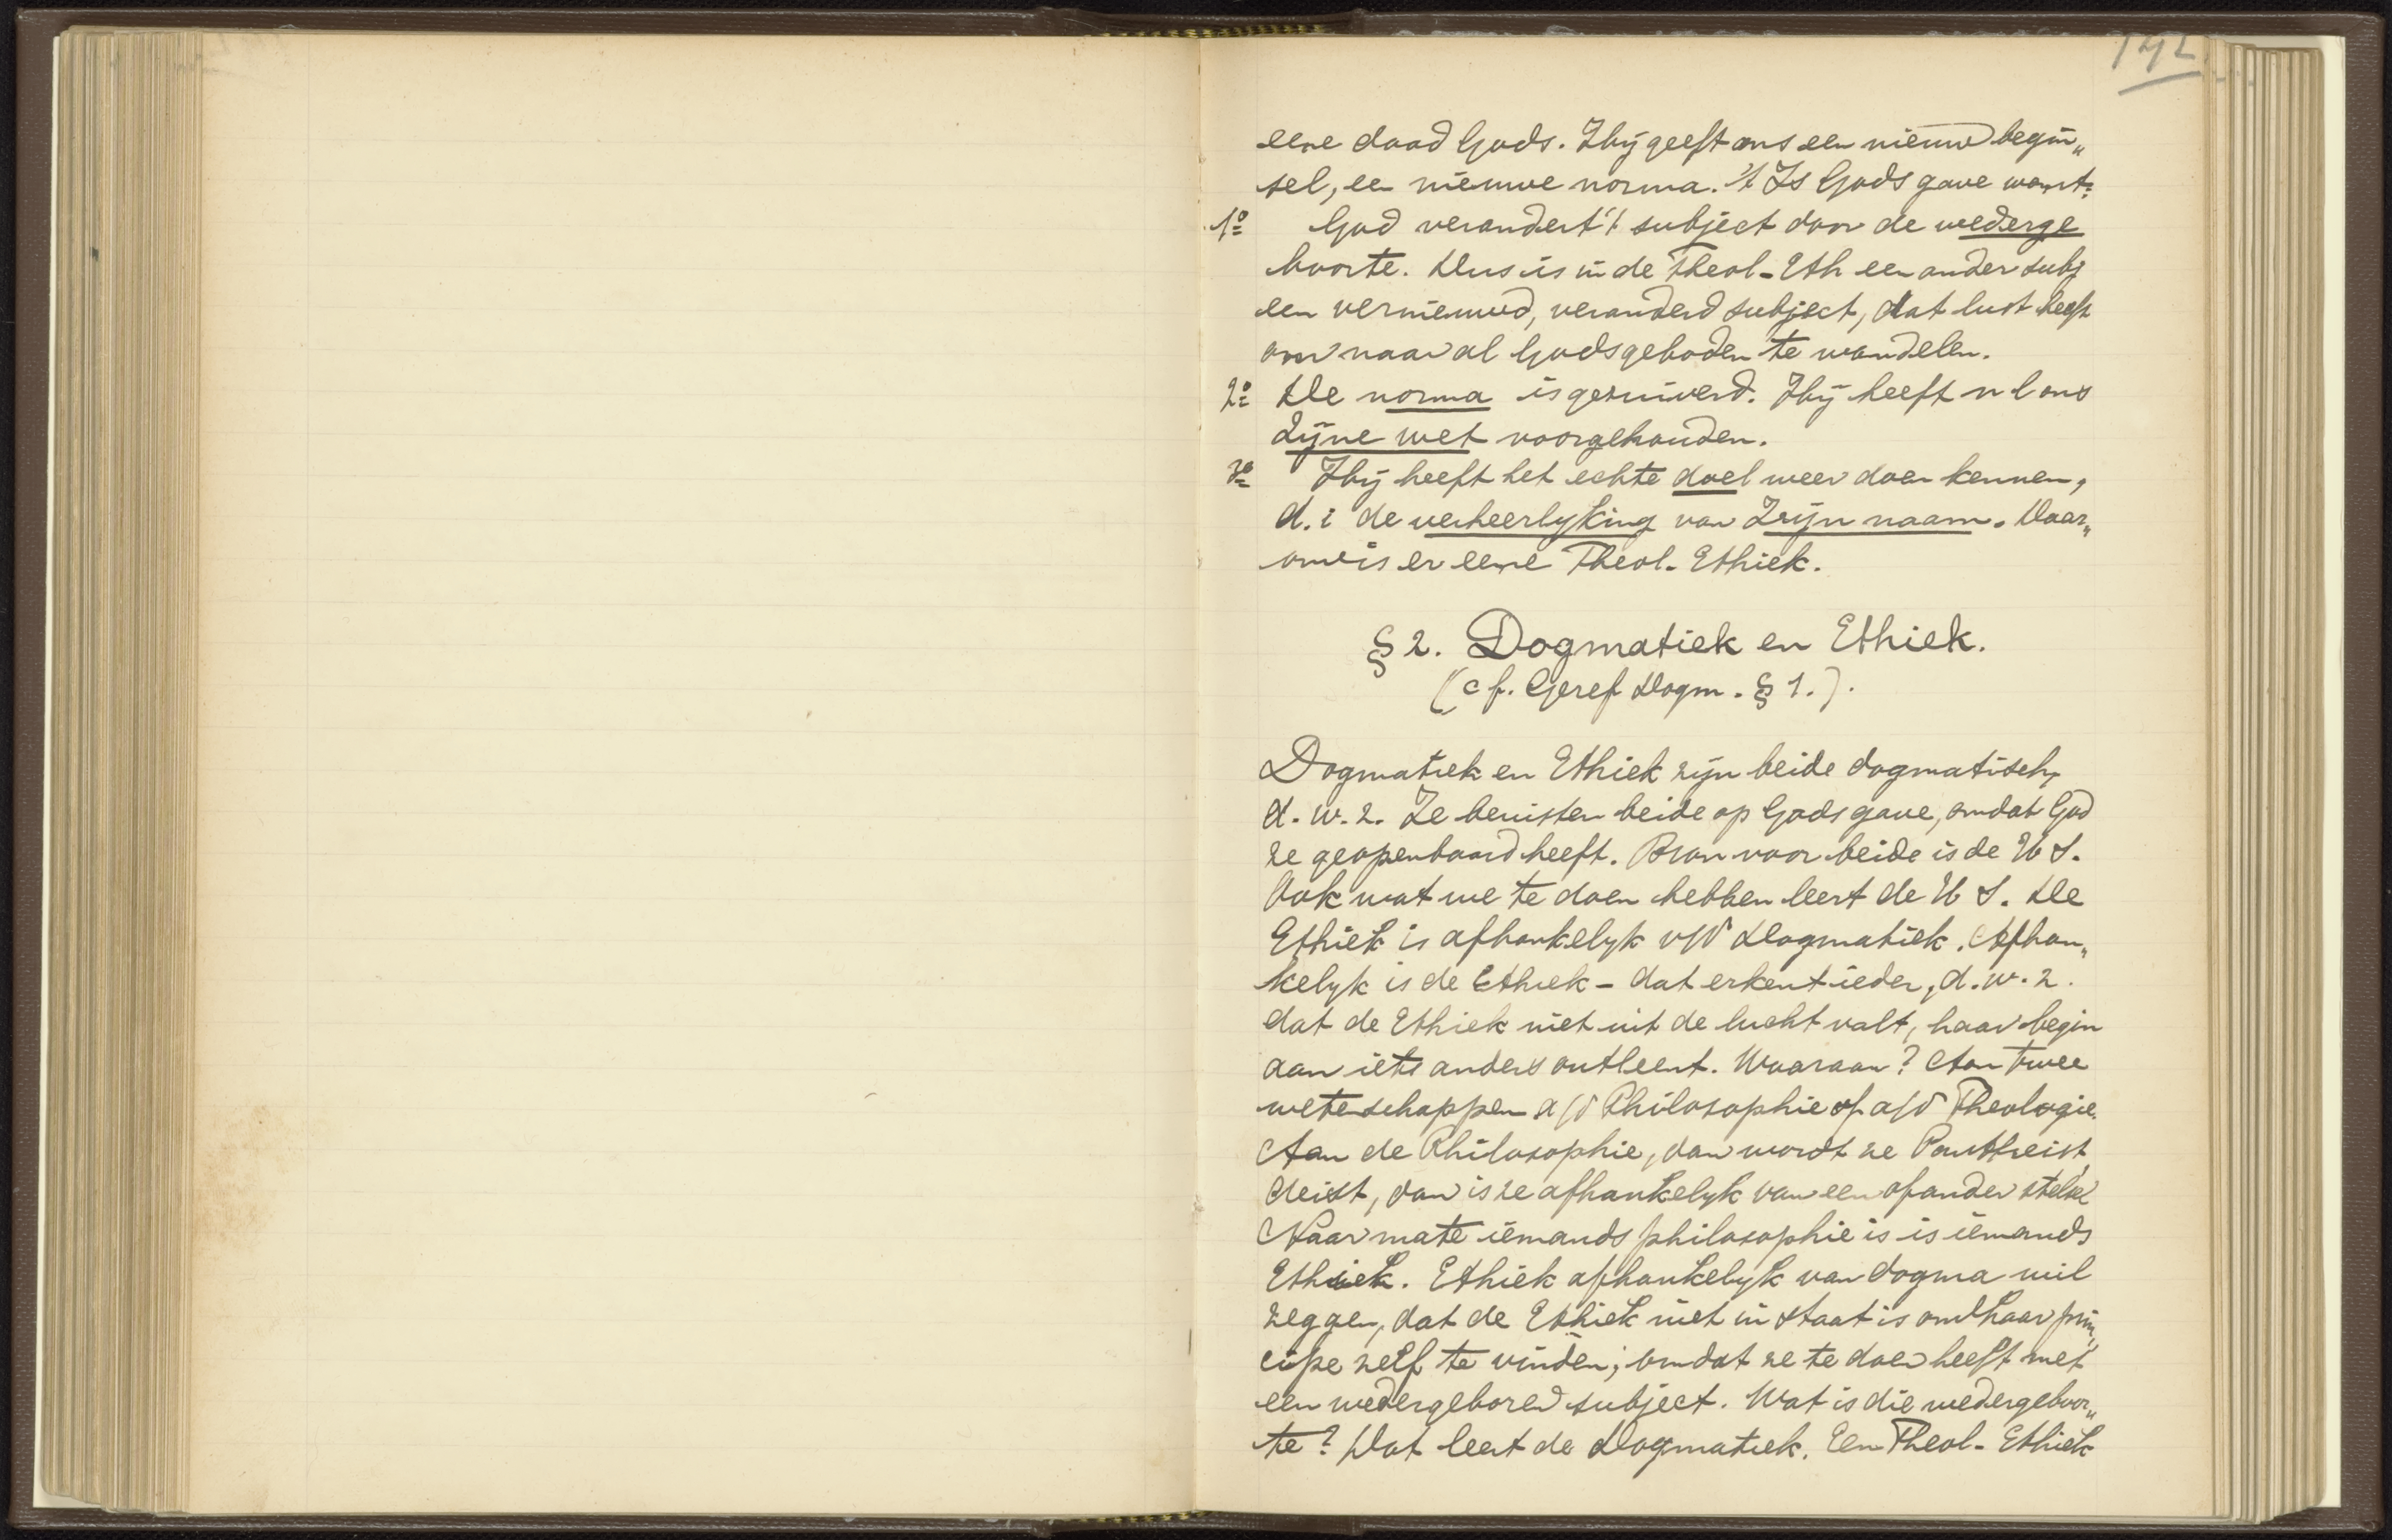 142
eene daad Gods. Hij geeft ons een nieuw begin„
sel, een nieuwe norma. 't Is Gods gave want:
1º God verandert 't subject door de wederge
boorte. Dus is in de Theol-Eth een ander subj
een vernieuwd, veranderd subject, dat lust heeft
om naar al Gods geboden te wandelen.
2º De norma is gezuiverd. Hij heeft n l ons
Zijne wet voorgehouden.
3º Hij heeft het echte doel weer doen kennen,
d. i de verheerlyking van Zijn naam. Daar„
om is er eene Theol. Ethiek.
§ 2. Dogmatiek en Ethiek.
(cf. Geref Dogm. § 1.).
Dogmatiek en Ethiek zijn beide dogmatisch,
d. w. z. Ze berusten beide op Gods gave, omdat God
ze geopenbaard heeft. Bron voor beide is de H S.
Ook wat we te doen hebben leert de H S. De
Ethiek is afhankelyk v/d Dogmatiek. Afhan„
kelyk is de Ethiek - dat erkent ieder, d. w. z.
dat de Ethiek niet uit de lucht valt, haar begin
aan iets anders ontleent. Waaraan? Aan twee
wetenschappen a/d Philosophie of a/d Theologie.
Aan de Philosophie, dan wordt ze Pantheist,
deist, dan is ze afhankelyk van een of ander stelsel
Naar mate iemands philosophie is is iemands
Ethiek. Ethiek afhankelyk van dogma wil
zeggen, dat de Ethiek niet in staat is om haar prin„
cipe zelf te vinden; omdat ze te doen heeft met
een wedergeboren subject. Wat is die wedergeboor„
te? Dat leert de Dogmatiek. Een Theol- Ethiek